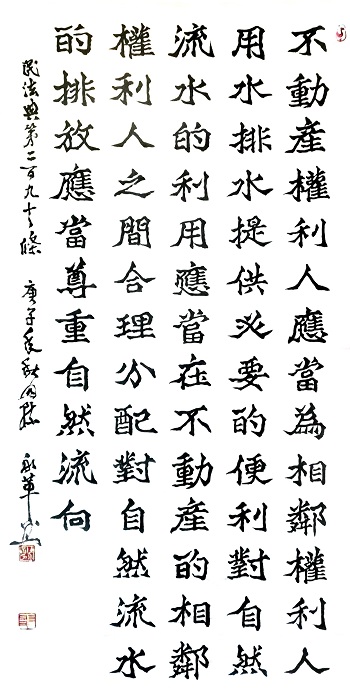 不動產權利人應當為相鄰權利人
用水排水提供必要的便利對自然
流水的利用應當在不動產的相鄰
權利人之間合理分配對自然流水
的排放應當尊重自然流向
民法典第二百九十條 庚子年秋月